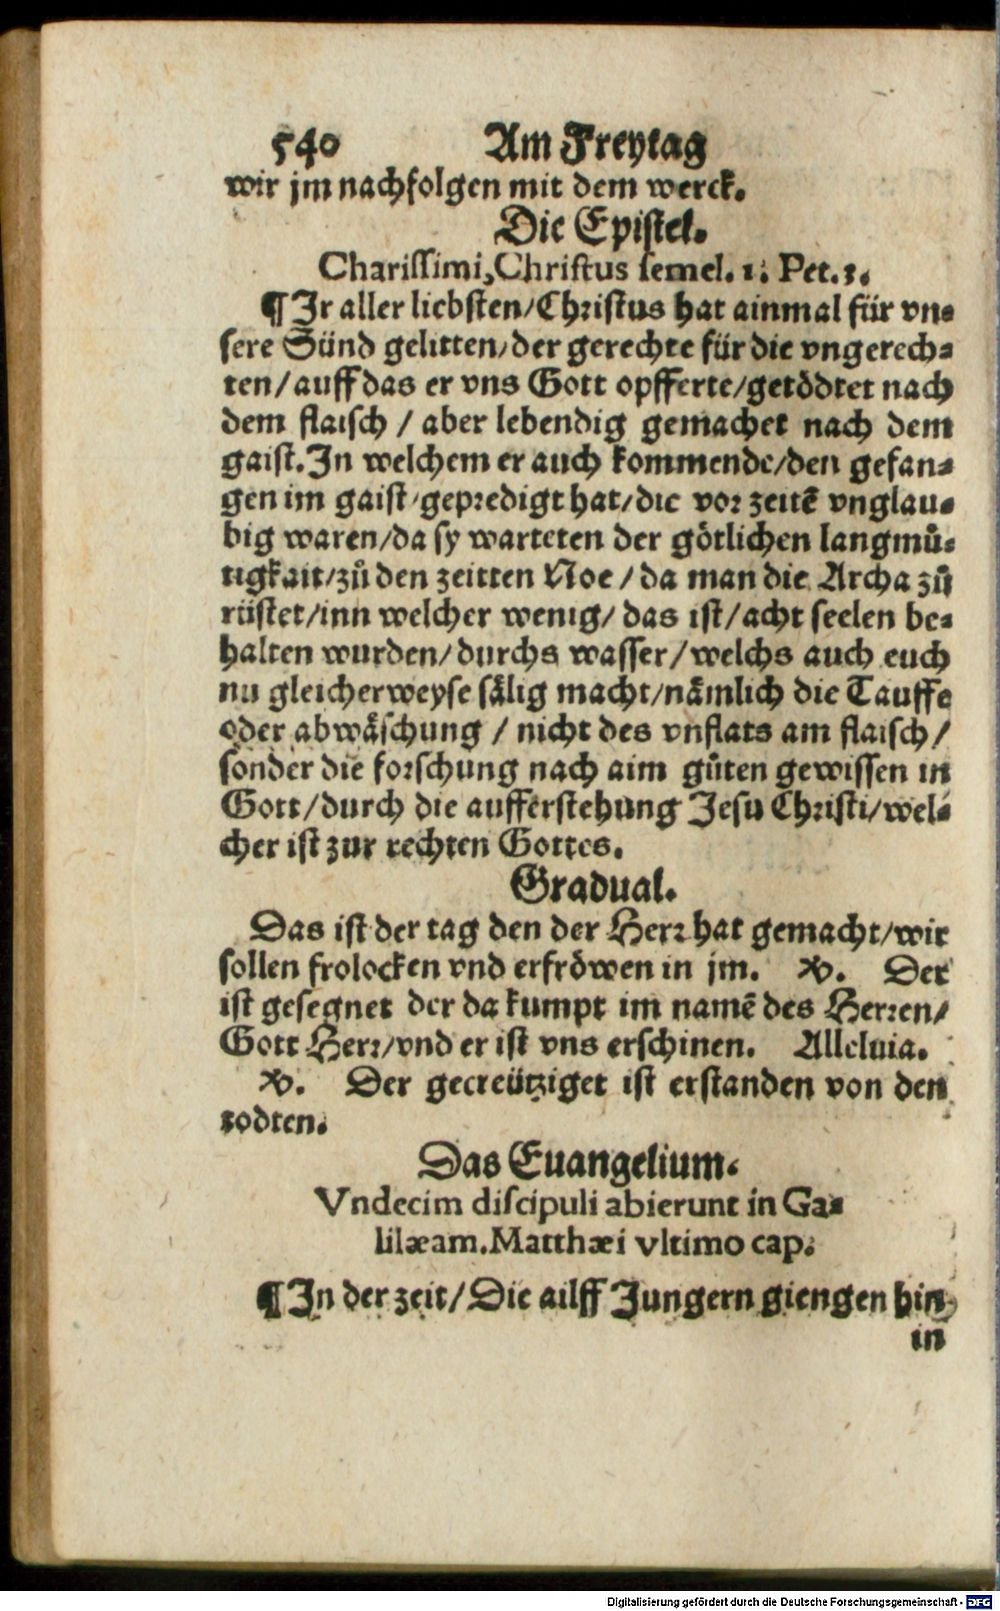 540 Am Freytag
wir jm nachfolgen mit dem werck.
Die Epistel.
Charissimi, Christus semel. 1. Pet. 3.
¶ Ir aller liebsten/Christus hat ainmal für vn-
sere Sünd gelitten/der gerechte für die vngerech-
ten/auff das er vns Gott opfferte/getödtet nach
dem flaisch / aber lebendig gemachet nach dem
gaist. In welchem er auch kommende/den gefan-
gen im gaist gepredigt hat/die vor zeitē vnglau-
big waren/da sy warteten der götlichen langmuͤ-
tigkait/zuͦ den zeitten Noe / da man die Archa zuͦ
rüstet/inn welcher wenig/ das ist/acht seelen be-
halten wurden/durchs wasser/welchs auch euch
nu gleicherweyse sälig macht/nämlich die Tauffe
oder abwäschung / nicht des vnflats am flaisch/
sonder die forschung nach aim guͦten gewissen in
Gott/durch die aufferstehung Jesu Christi/wel-
cher ist zur rechten Gottes.
Gradual.
Das ist der tag den der Herr hat gemacht/wir
sollen frolocken vnd erfröwen in jm. ℣. Der
ist gesegnet der da kumpt im namē des Herren/
Gott Herr/vnd er ist vns erschinen. Alleluia.
℣. Der gecreütziget ist erstanden von den
todten.
Das Euangelium.
Vndecim discipuli abierunt in Ga-
lilæam. Matthæi vltimo cap.
¶ In der zeit/ Die ailff Jungern giengen hin
in
Digitalisierung gefördert durch die Deutsche Forschungsgemeinschaft - DFG